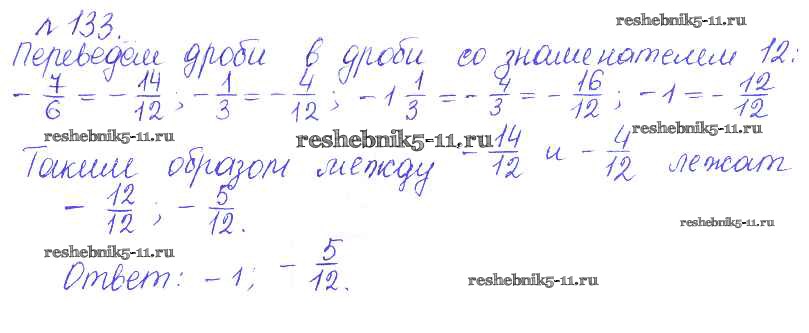 №133.
reshebnik5-11.ru
Переведём дроби в дроби со знаменателем 12:
-7/6 = -14/12; -1/3 = -4/12; -1 1/3 = -4/3 = -16/12; -1 = -12/12
reshebnik5-11.ru reshebnik5-11.ru reshebnik5-11.ru
Таким образом между -14/12 и -4/12 лежат
-12/12; -5/12.
reshebnik5-11.ru
reshebnik5-11.ru
Ответ: -1; -5/12.
reshebnik5-11.ru